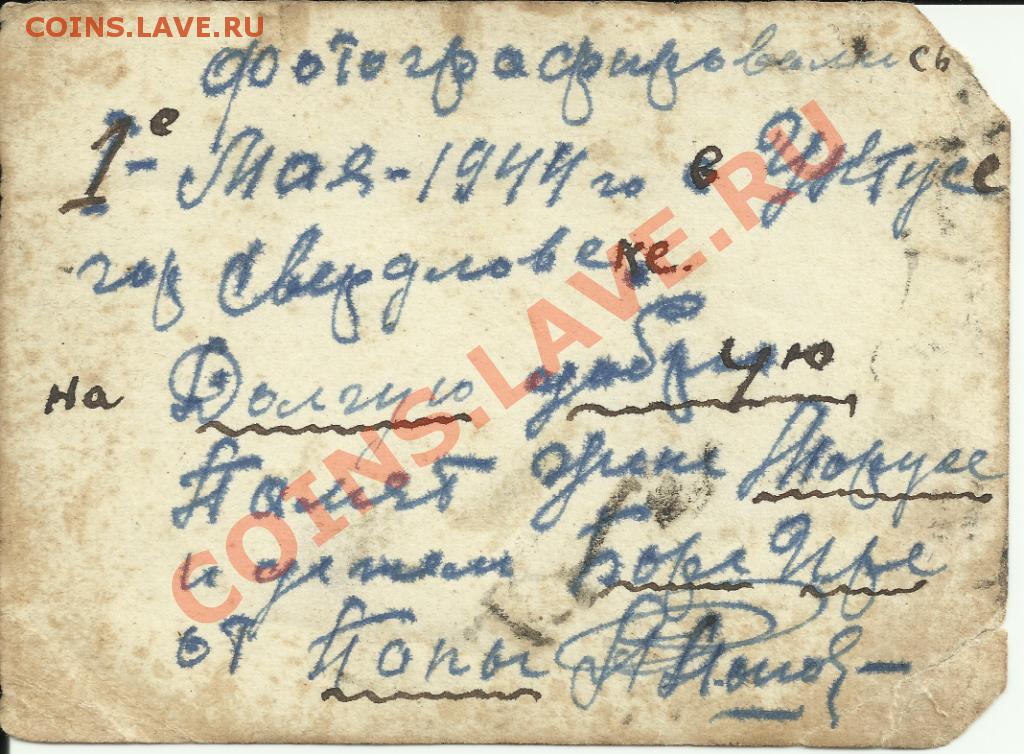 COINS.LAVE.RU
фотографировались
1е Мая-1944 го в Уктусе
гор Свердловске.
на Долгую добрую
Памят жене Марусе
и детям Боре Ире
от Папы
COINS.LAVE.RU